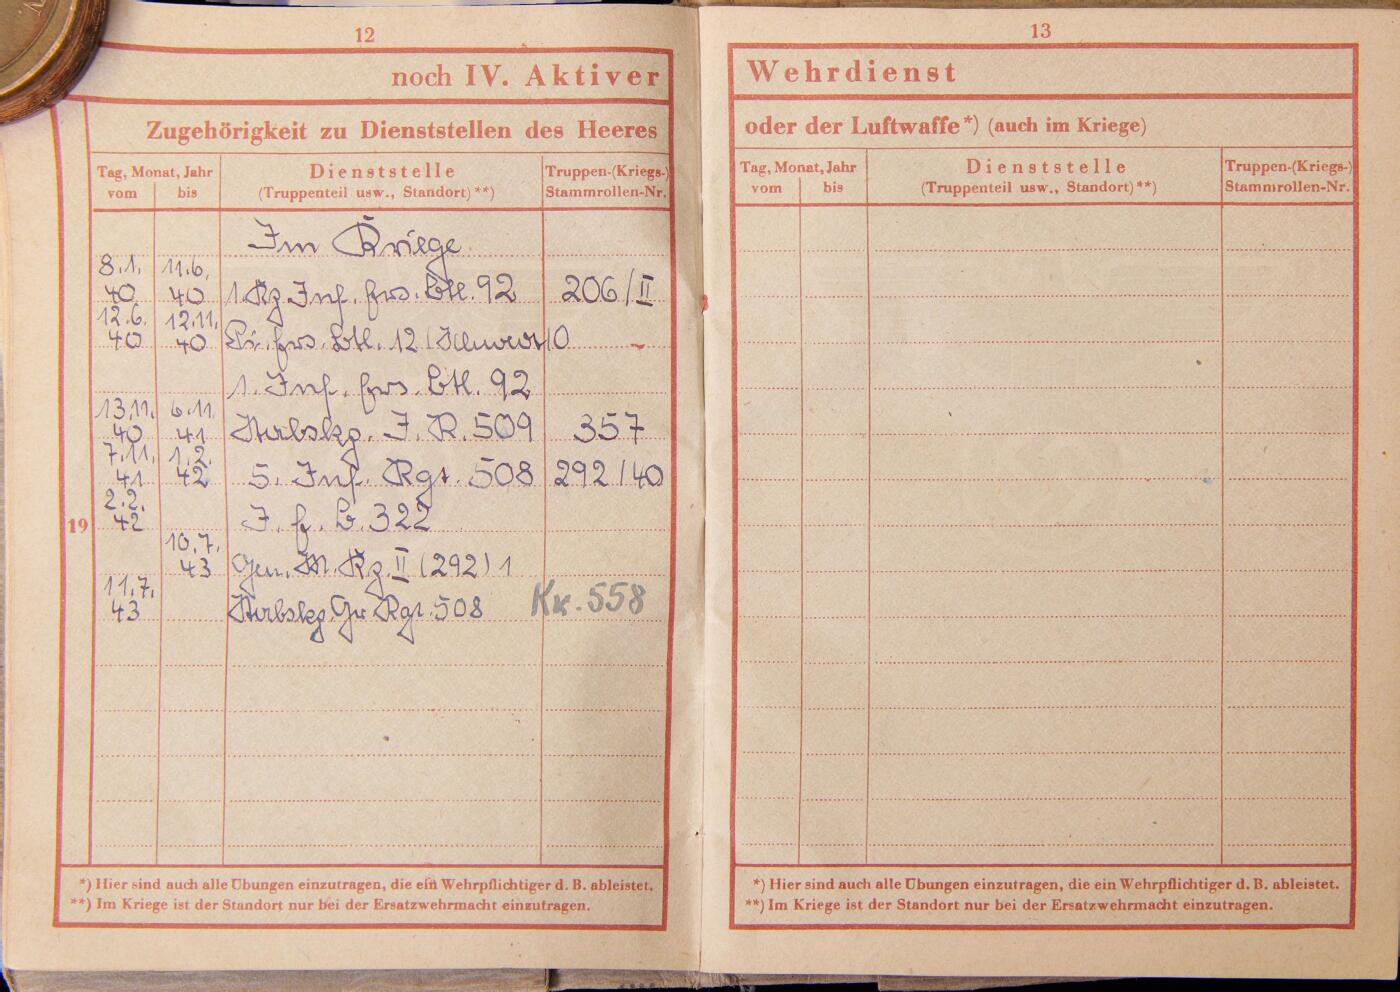 12
noch IV. Aktiver
Zugehörigkeit zu Dienststellen des Heeres
Tag, Monat, Jahr
vom bis
Dienststelle
(Truppenteil usw., Standort)**)
Truppen-(Kriegs-)
Stammrollen-Nr.
Im Kriege
8.1. 40 11.6. 40 1. Kg. Inf. Ers. Btl. 92 206/II
12.6. 40 12.11. 40 Pi. Ers. Btl. 12
1. Inf. Ers. Btl. 92
13.11. 40 6.11. 41 Stabskp. I. R. 509 357
7.11. 41 1.2. 42 5. Inf. Rgt. 508 292/40
2.2. 42 I. E. B. 322
19
10.7. 43 Gen. Kp. II (292) 1
11.7. 43 Stabskp. Gr Rgt. 508 Kr. 558
*) Hier sind auch alle Übungen einzutragen, die ein Wehrpflichtiger d. B. ableistet.
**) Im Kriege ist der Standort nur bei der Ersatzwehrmacht einzutragen.
13
Wehrdienst
oder der Luftwaffe*) (auch im Kriege)
Tag, Monat, Jahr
vom bis
Dienststelle
(Truppenteil usw., Standort)**)
Truppen-(Kriegs-)
Stammrollen-Nr.
*) Hier sind auch alle Übungen einzutragen, die ein Wehrpflichtiger d. B. ableistet.
**) Im Kriege ist der Standort nur bei der Ersatzwehrmacht einzutragen.